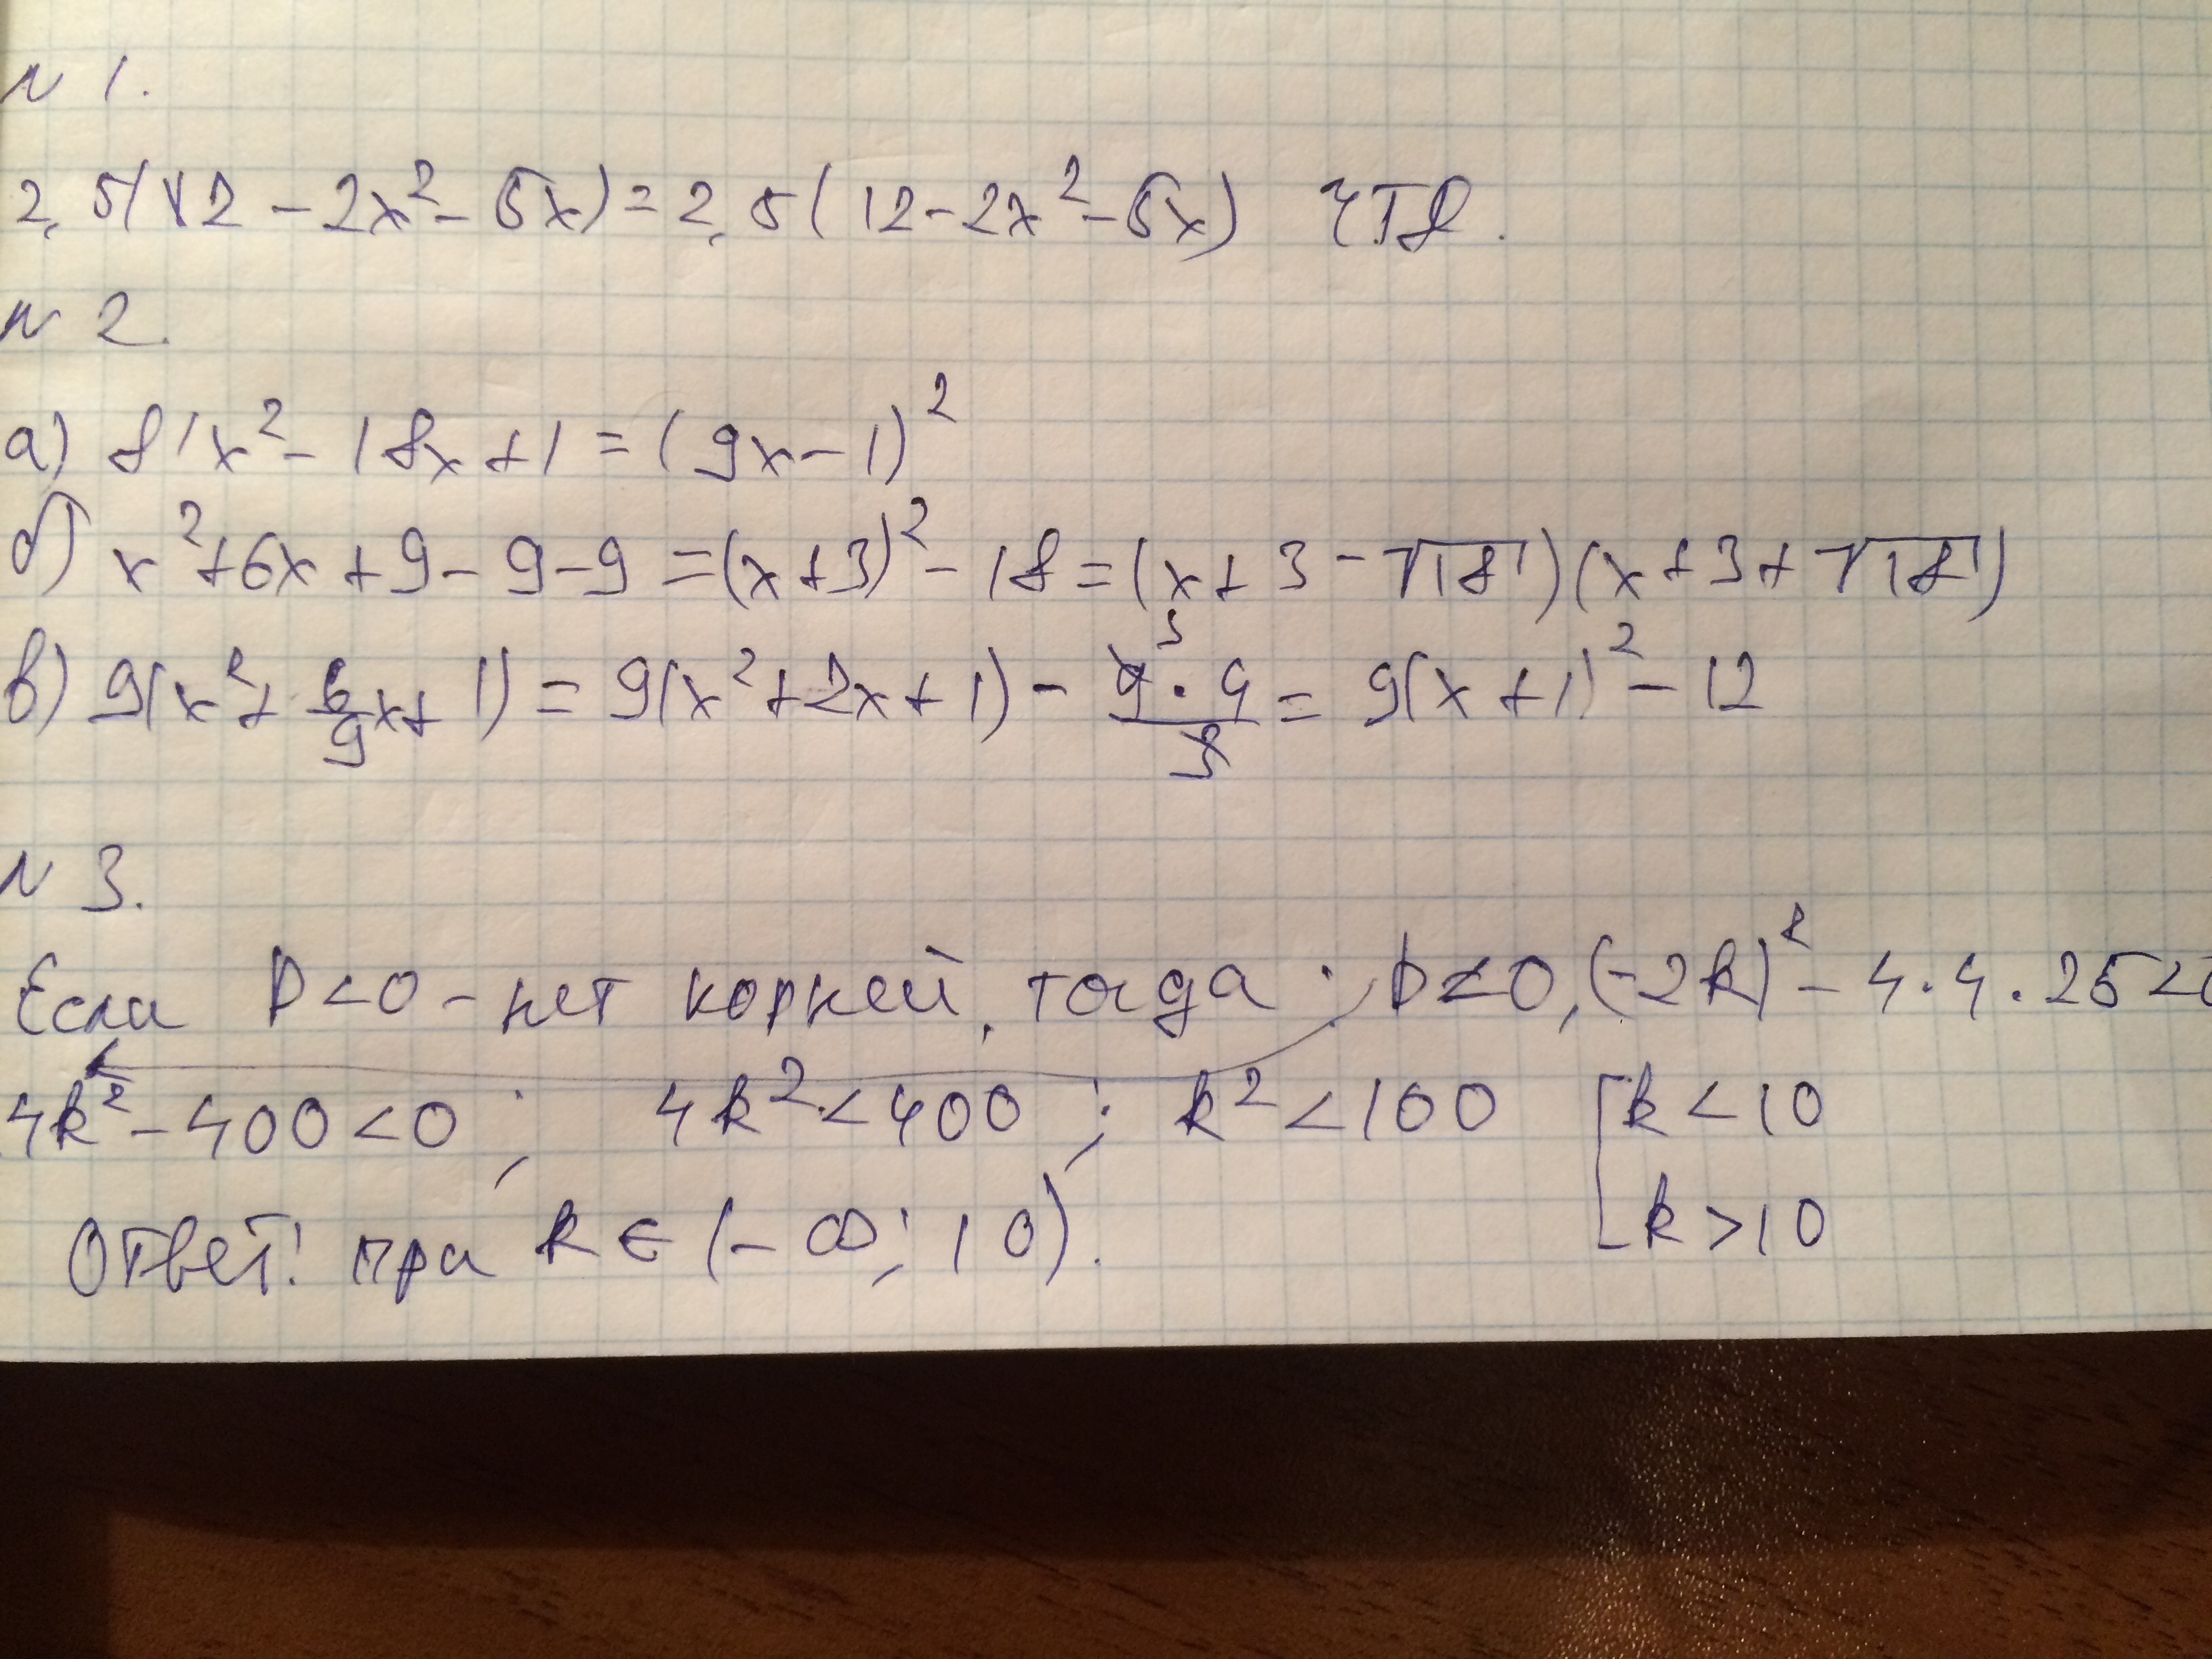 N 1.
2,5(12 - 2x² - 5x) = 2,5(12 - 2x² - 5x) ЧТД.
N 2.
а) 81x² - 18x + 1 = (9x - 1)²
б) x² + 6x + 9 - 9 - 9 = (x + 3)² - 18 = (x + 3 - √18)(x + 3 + √18)
в) 9(x² + 6/9 x + 1) = 9(x² + 2x + 1) - 9·4/3 = 9(x + 1)² - 12
N 3.
Если D < 0 - нет корней, тогда: D < 0, (-2k)² - 4·4·25 < 0
4k² - 400 < 0; 4k² < 400; k² < 100 [k < 10
k > 10
Ответ: при k ∈ (-∞; 10).